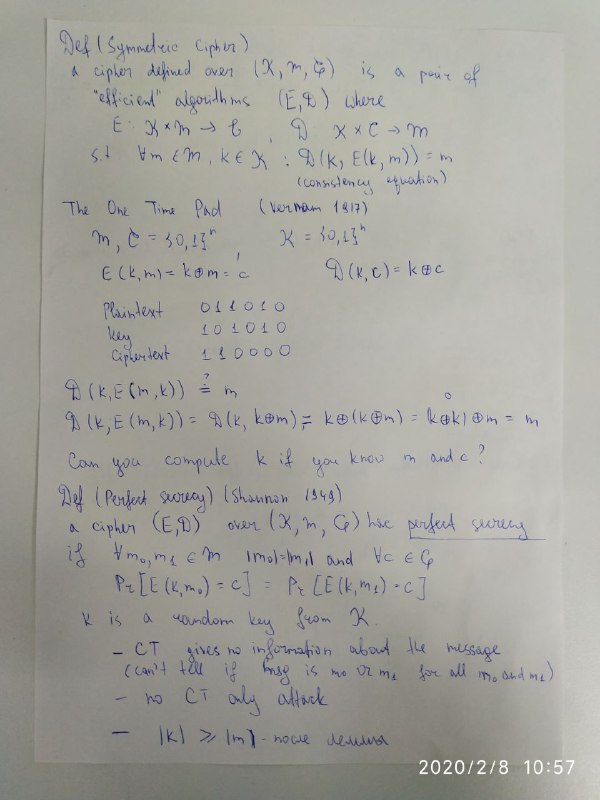 Def (Symmetric Cipher)
a cipher defined over (K, M, C) is a pair of
"efficient" algorithms (E, D) where
E: K × M → C, D K × C → M
s.t ∀m ∈ M, k ∈ K : D(k, E(k, m)) = m
(consistency equation)
The One Time Pad (Vernam 1917)
M, C = {0,1}ⁿ K = {0,1}ⁿ
E(k,m) = k⊕m = c D(k,c) = k⊕c
Plaintext 0 1 1 0 1 0
key 1 0 1 0 1 0
Ciphertext 1 1 0 0 0 0
D(k, E(m,k)) ≟ m
D(k, E(m,k)) = D(k, k⊕m) = k⊕(k⊕m) = (k⊕k)⊕m = m
0
Can you compute k if you know m and c?
Def (Perfect secrecy) (Shannon 1949)
a cipher (E, D) over (K, M, C) has perfect secrecy
if ∀m₀, m₁ ∈ M |m₀|=|m₁| and ∀c ∈ C
Pr[E(k,m₀) = c] = Pr[E(k,m₁) = c]
k is a random key from K.
– CT gives no information about the message
(can't tell if msg is m₀ or m₁ for all m₀ and m₁)
– no CT only attack
– |k| ≥ |m| - после леммы
2020/2/8 10:57